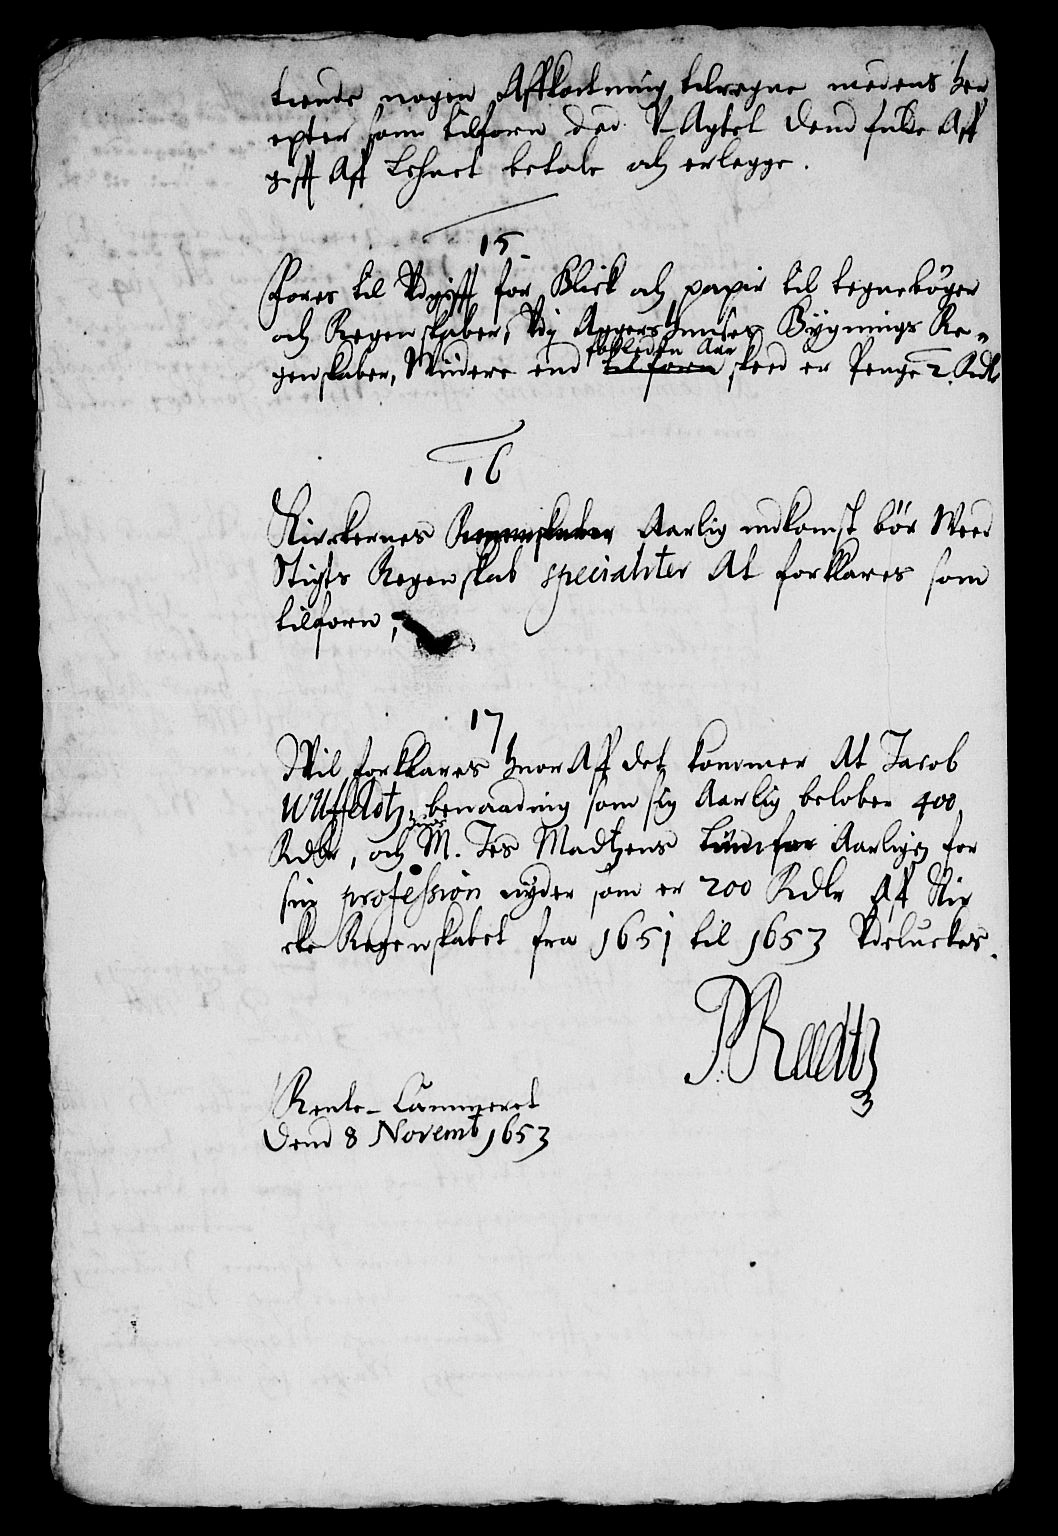 tiende nogen Affkortning tilregne medens her
epter som tilforn den V-Agtet dend fulde Aff
gifft Aff Lehnet betale och erlegge.
15
Føres til Vdgifft for Blick och papir til tegnebøger
och Regenskaber, Vdj Aggershuuses Bygnings Re-
forleden Aar
genskaber, Mindere end tilforn skeed er Penge 2 Rdlr
16
Kirckernes Regenskaber Aarlig indkomst bør Meed
Stigts Regenskab specialiter At forklares som
tilforn,
17
Vil forklares huor Aff det kommer At Jacob
Wuffeldtz benaading som sig Aarlig beløber 400
Rdlr, och huis M. Jes Madtzens Aarligen for
sin profession nyder som er 200 Rdlr Aff Kir
cke Regenskabet fra 1651 til 1653 Vdeluckes.
P. Reedtz
Rente-Cammeret
Dend 8 Novemb 1653